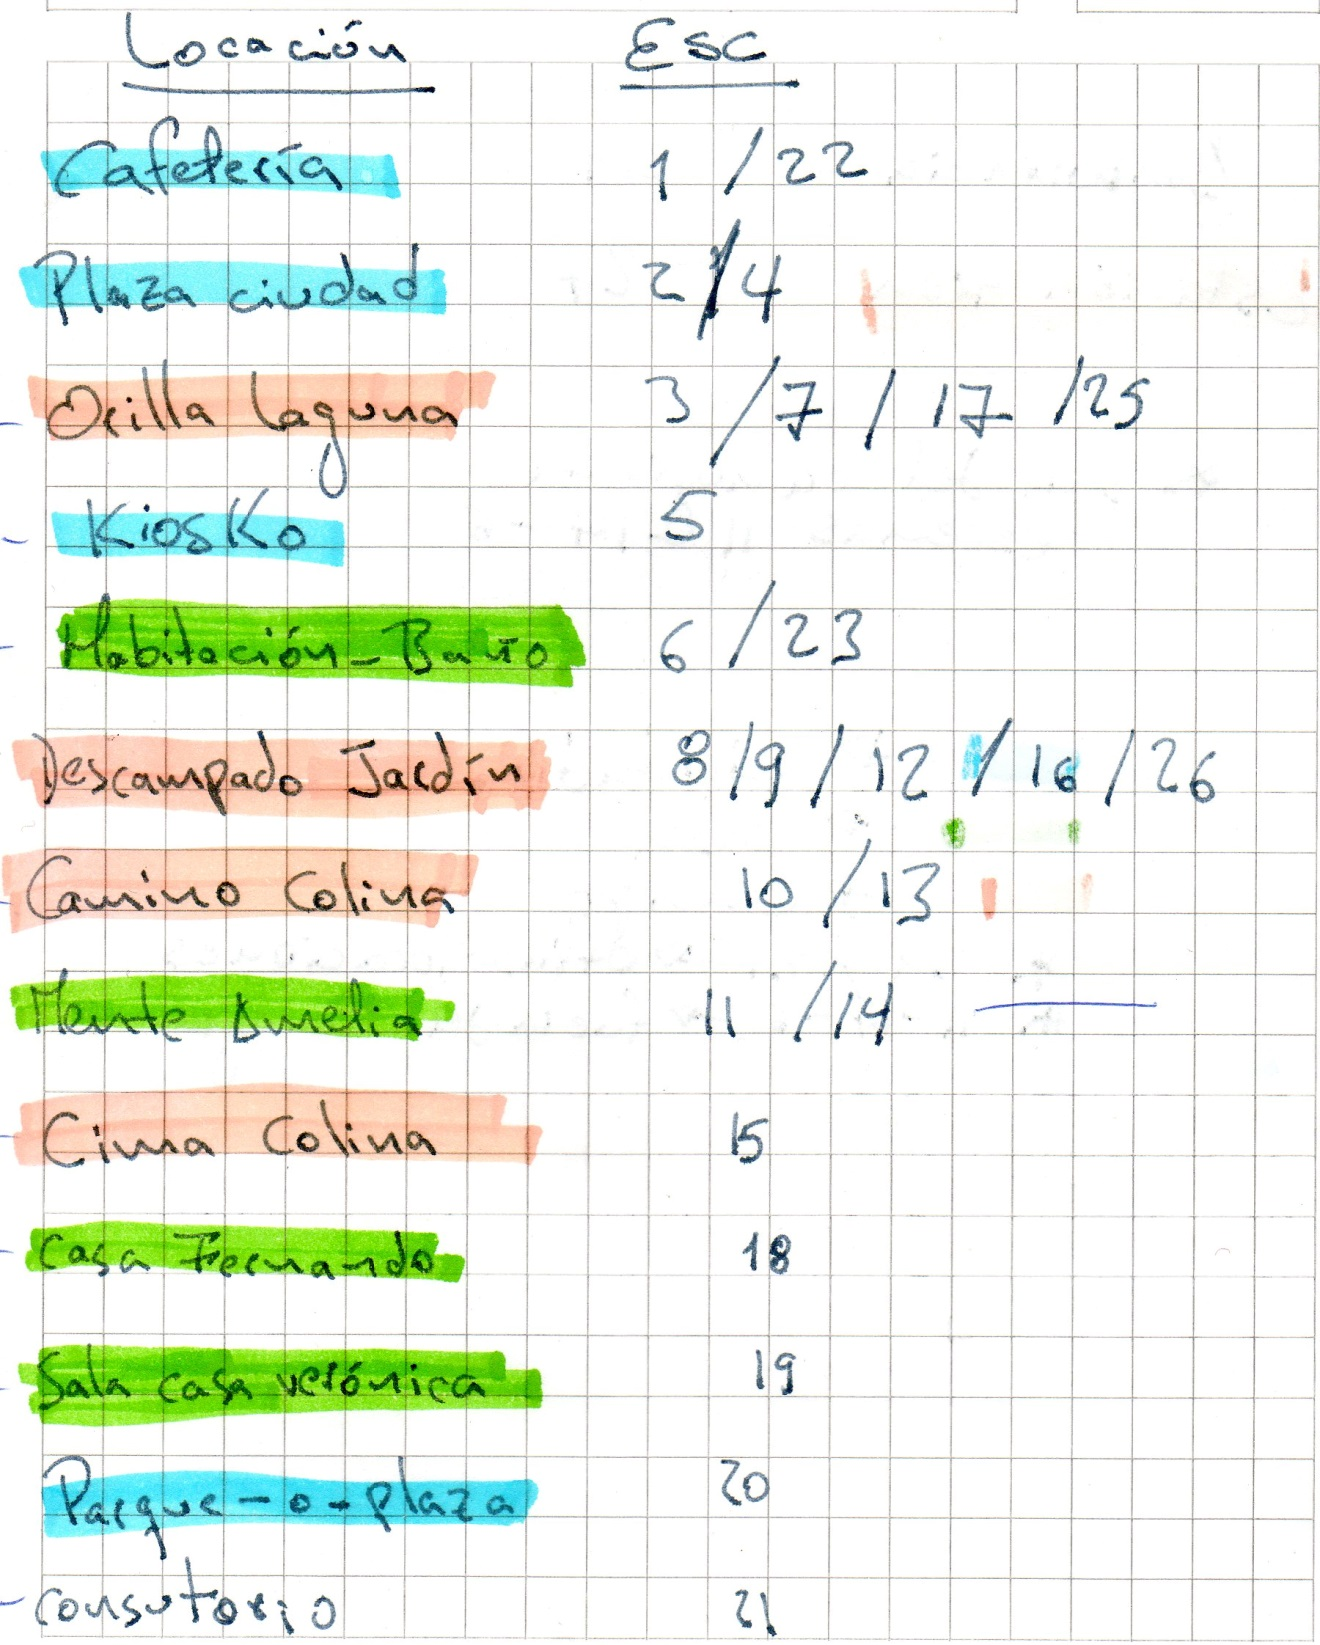 Locación Esc
Cafetería 1 / 22
Plaza ciudad 2 / 4
Orilla Laguna 3 / 7 / 17 / 25
Kiosko 5
Habitación - Baño 6 / 23
Descampado Jardín 8 / 9 / 12 / 16 / 26
Camino Colina 10 / 13
Mente Amelia 11 / 14
Cima Colina 15
Casa Fernando 18
Sala casa verónica 19
Parque - o - plaza 20
consutorio 21